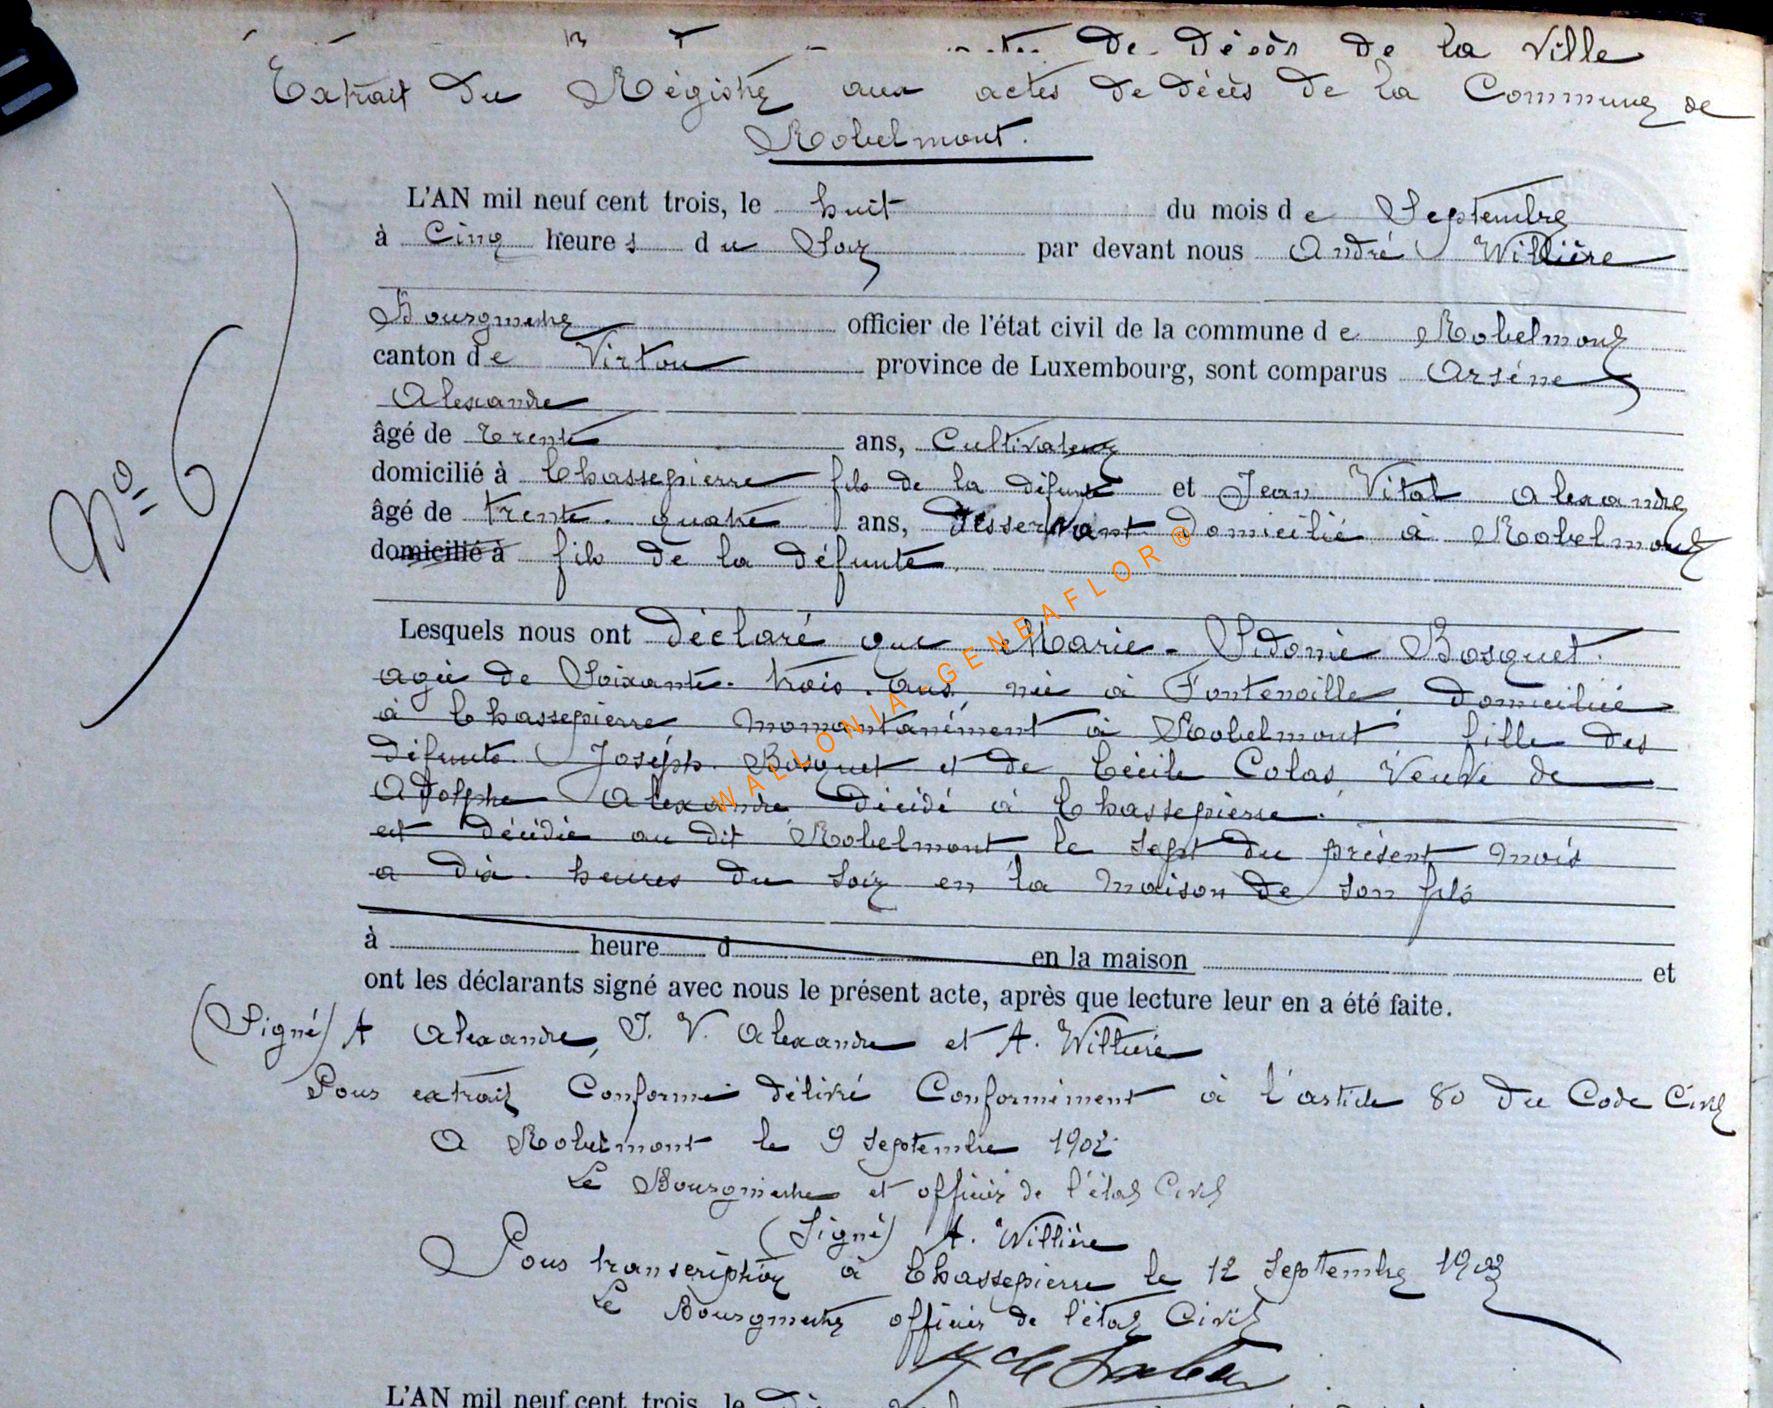 de Décès de la Ville
Extrait du Régistre aux actes de décès de la Commune de
Robelmont.
L'AN mil neuf cent trois, le huit du mois de Septembre
à Cinq heures du Soir par devant nous André Willière
Bourgmestre officier de l'état civil de la commune de Robelmont
canton de Virton province de Luxembourg, sont comparus Arsène
Alexandre
âgé de trente ans, Cultivateur
domicilié à Chassepierre fils de la défunte et Jean Vital Alexandre
âgé de trente-quatre ans, desservant domicilié à Robelmont
domicilié à fils de la défunte.
Lesquels nous ont déclaré que Marie-Sidonie Bosquet.
agée de Soixante-trois ans, née à Fontenoille, domiciliée
à Chassepierre momantanément à Robelmont, fille des
défunts Joseph Bosquet et de Cécile Colas, Veuve de
Adolphe Alexandre décédé à Chassepierre.
est décédée au dit Robelmont, le sept du présent mois
a dix heures du soir en la maison de son fils
à heure d en la maison et
ont les déclarants signé avec nous le présent acte, après que lecture leur en a été faite.
(Signé) A Alexandre, J. V. Alexandre et A. Willière
Pour extrait Conforme délivré Conformément à l'article 80 du Code Civil
A Robelmont le 9 Septembre 1902
Le Bourgmestre et officier de l'état Civil
(Signé) A. Willière
Pour transcription à Chassepierre le 12 Septembre 1903
Le Bourgmestre officier de l'état Civil
L'AN mil neuf cent trois, le
No 6
WALLONIA-GENEAFLOR ®